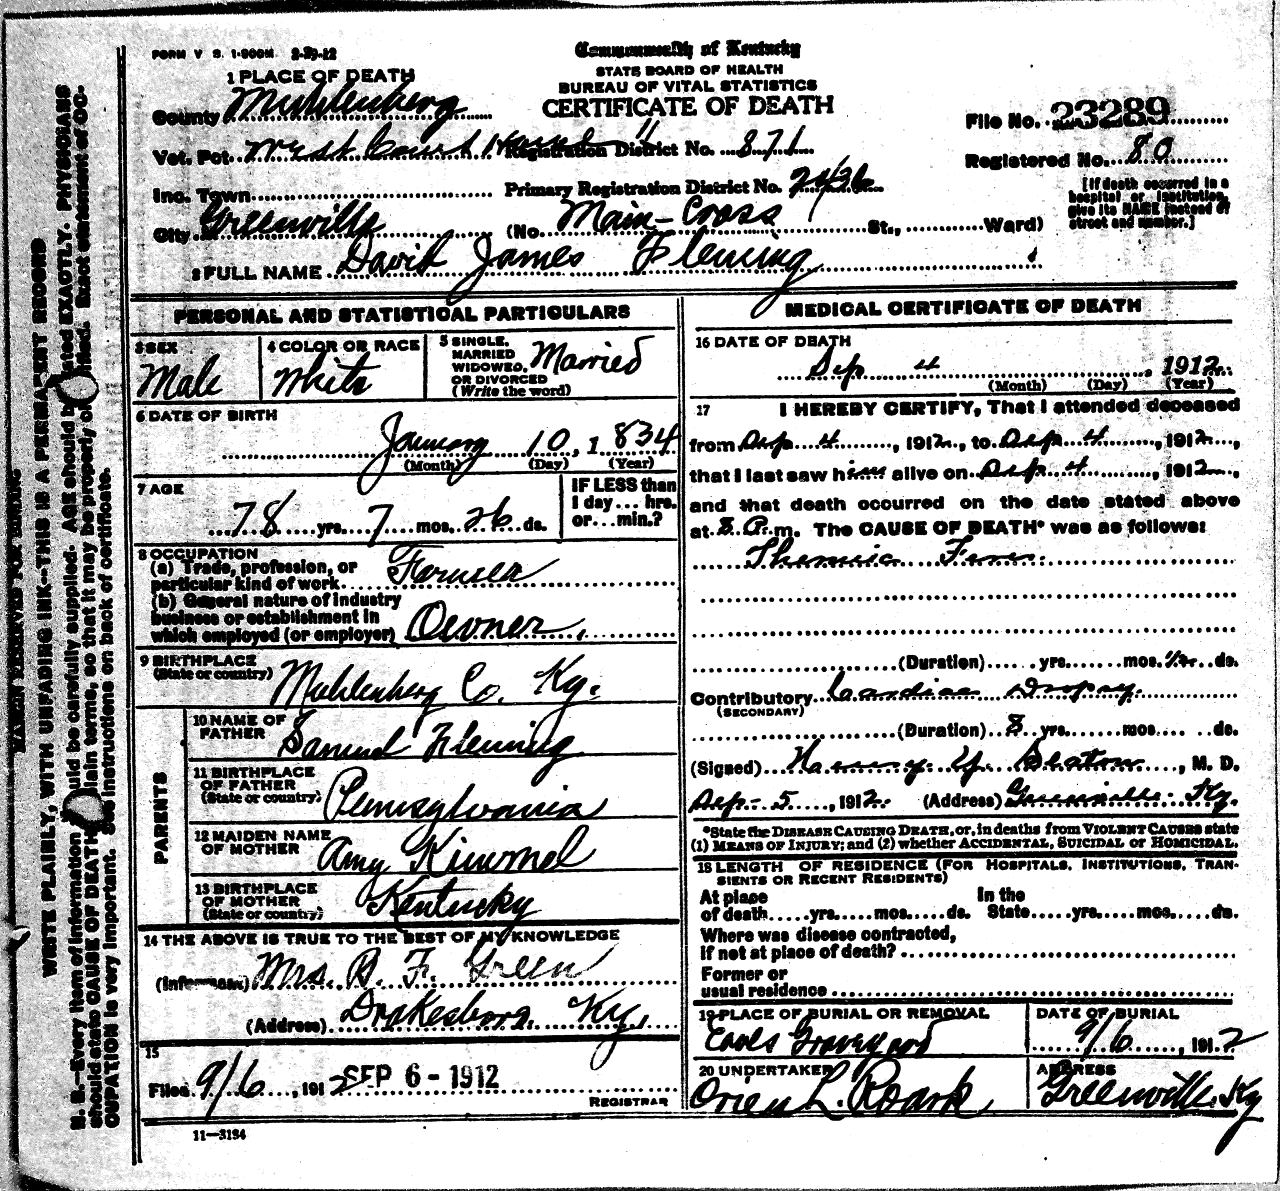 FORM V. S. 1-500M. 2-29-12
Commonwealth of Kentucky
STATE BOARD OF HEALTH
BUREAU OF VITAL STATISTICS
CERTIFICATE OF DEATH
1 PLACE OF DEATH
County Muhlenberg
File No. 23289
Vot. Pct. West Court House Registration District No. 871
Registered No. 80
Inc. Town Primary Registration District No. 2436
[If death occurred in a hospital or institution, give its NAME instead of street and number.]
City Greenville (No. Main-Cross St., Ward)
2 FULL NAME David James Fleming
PERSONAL AND STATISTICAL PARTICULARS
3 SEX Male
4 COLOR OR RACE White
5 SINGLE, MARRIED WIDOWED, OR DIVORCED (Write the word) Married
6 DATE OF BIRTH
January 10, 1834
(Month) (Day) (Year)
7 AGE
78 yrs. 7 mos. 26 ds.
IF LESS than 1 day... hrs. or... min.?
8 OCCUPATION
(a) Trade, profession, or particular kind of work Farmer
(b) General nature of industry business or establishment in which employed (or employer) Owner
9 BIRTHPLACE (State or country) Muhlenberg Co. Ky.
PARENTS
10 NAME OF FATHER Samuel Fleming
11 BIRTHPLACE OF FATHER (State or country) Pennsylvania
12 MAIDEN NAME OF MOTHER Amy Kimmel
13 BIRTHPLACE OF MOTHER (State or country) Kentucky
14 THE ABOVE IS TRUE TO THE BEST OF MY KNOWLEDGE
(Informant) Mrs. B. F. Green
(Address) Drakesboro, Ky.
15
Filed 9/6, 1912 SEP 6 - 1912
REGISTRAR
11-3184
MEDICAL CERTIFICATE OF DEATH
16 DATE OF DEATH
Sep 4, 1912
(Month) (Day) (Year)
17 I HEREBY CERTIFY, That I attended deceased
from Sep 4, 1912, to Sep 4, 1912,
that I last saw him alive on Sep 4, 1912,
and that death occurred on the date stated above
at 8 P.m. The CAUSE OF DEATH* was as follows:
Thermic Fever
(Duration) yrs. mos. 1/2 ds.
Contributory Cardiac Dropsy
(SECONDARY)
(Duration) 8 yrs. mos. ds.
(Signed) Henry Y. Slaton, M. D.
Sep-5, 1912 (Address) Greenville Ky.
*State the DISEASE CAUSING DEATH, or, in deaths from VIOLENT CAUSES state
(1) MEANS OF INJURY; and (2) whether ACCIDENTAL, SUICIDAL OR HOMICIDAL.
18 LENGTH OF RESIDENCE (FOR HOSPITALS, INSTITUTIONS, TRANSIENTS OR RECENT RESIDENTS)
At place of death yrs. mos. ds. In the State yrs. mos. ds.
Where was disease contracted, if not at place of death?
Former or usual residence
19 PLACE OF BURIAL OR REMOVAL
Eaves Graveyard
DATE OF BURIAL
9/6, 1912
20 UNDERTAKER
Orien L. Roark
ADDRESS
Greenville, Ky
MARGIN RESERVED FOR BINDING
WRITE PLAINLY, WITH UNFADING INK—THIS IS A PERMANENT RECORD
N. B.—Every item of information should be carefully supplied. AGE should be stated EXACTLY. PHYSICIANS
should state CAUSE OF DEATH in plain terms, so that it may be properly classified. Exact statement of OC-
CUPATION is very important. See instructions on back of certificate.